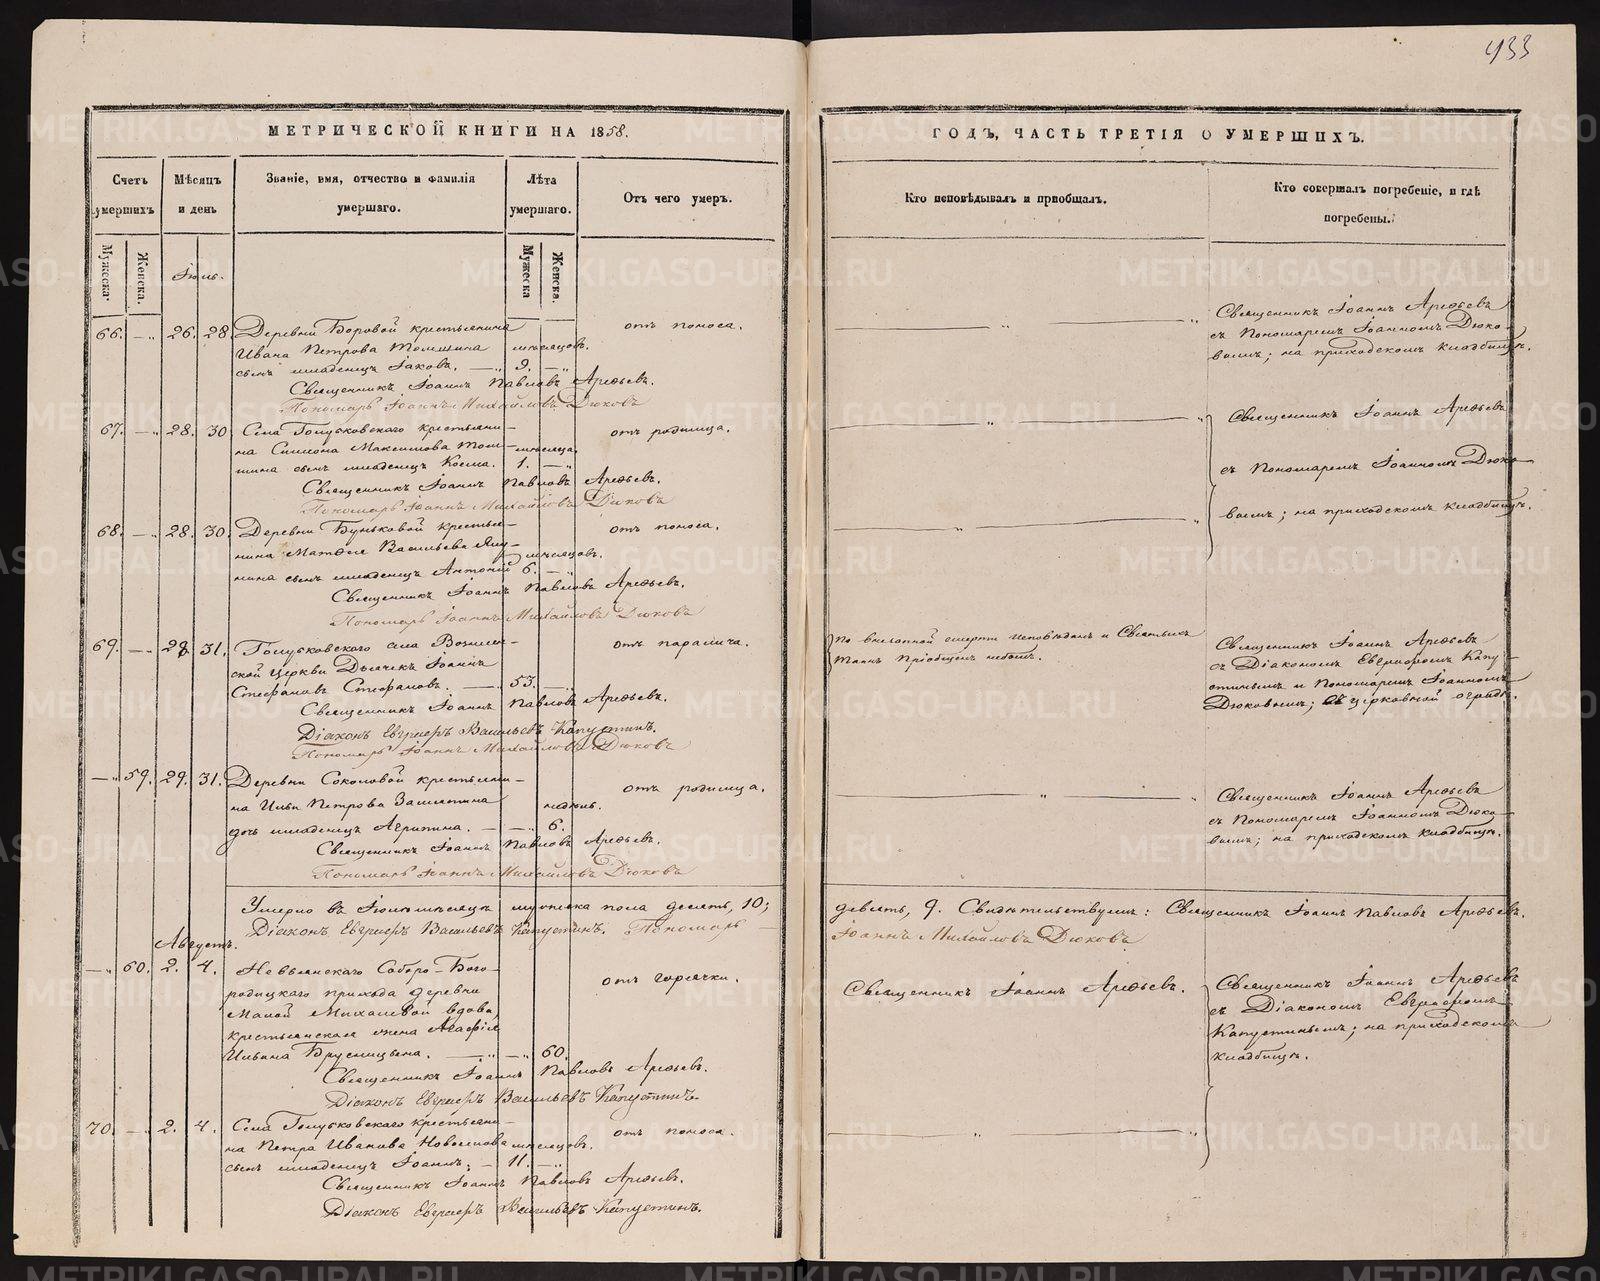 433
МЕТРИЧЕСКОЙ КНИГИ НА 1858.
ГОДЪ, ЧАСТЬ ТРЕТІЯ О УМЕРШИХЪ.
Счетъ умершихъ
Мѣсяцъ и день
Званіе, имя, отчество и фамилія умершаго.
Лѣта умершаго.
Отъ чего умеръ.
Кто исповѣдывалъ и пріобщалъ.
Кто совершалъ погребеніе, и гдѣ погребены.
Мужеска.
Женска.
Іюль.
Мужеска
Женска.
66. — 26. 28. Деревни Боровой крестьянина
Ивана Петрова Томшина мѣсяцовъ.
сынъ младенецъ Іаковъ. — 9. —
отъ поноса.
Священникъ Іоаннъ Павловъ Арефьевъ.
Пономарь Іоаннъ Михайловъ Дюковъ
Священникъ Іоаннъ Арефьевъ
съ Пономаремъ Іоанномъ Дюко-
вымъ; на приходскомъ кладбищѣ.
67. — 28. 30. Села Голубковскаго крестьяни-
на Симона Максимова Том- мѣсяца.
шина сынъ младенецъ Косма. 1. —
отъ родимца.
Священникъ Іоаннъ Павловъ Арефьевъ.
Пономарь Іоаннъ Михайловъ Дюковъ
Священникъ Іоаннъ Арефьевъ
съ Пономаремъ Іоанномъ Дюко-
вымъ; на приходскомъ кладбищѣ.
68. — 28. 30. Деревни Буньковой крестья-
нина Матѳея Васильева мѣсяцовъ.
нина сынъ младенецъ Антоній 6. —
отъ поноса.
Священникъ Іоаннъ Павловъ Арефьевъ.
Пономарь Іоаннъ Михайловъ Дюковъ
69. — 29. 31. Голубковскаго села Вознесен-
ской церкви Дьячекъ Іоаннъ
Стефановъ Стефановъ. — 53. —
отъ паралича.
Священникъ Іоаннъ Павловъ Арефьевъ.
Діаконъ Евграфъ Васильевъ Капустинъ.
Пономарь Іоаннъ Михайловъ Дюковъ
По внезапной смерти исповѣданъ и Святыхъ
Таинъ пріобщенъ небылъ.
Священникъ Іоаннъ Арефьевъ
съ Діакономъ Евграфомъ Капу-
стинымъ и Пономаремъ Іоанномъ
Дюковымъ; въ церковной оградѣ.
— 59. 29. 31. Деревни Соколовой крестьяни-
на Ильи Петрова Замятина недѣль.
дочь младенецъ Агрипина. — 6.
отъ родимца.
Священникъ Іоаннъ Павловъ Арефьевъ.
Пономарь Іоаннъ Михайловъ Дюковъ
Священникъ Іоаннъ Арефьевъ
съ Пономаремъ Іоанномъ Дюко-
вымъ; на приходскомъ кладбищѣ.
Умерло въ Іюлѣ мѣсяцѣ мужеска пола десять, 10;
девять, 9. Свидѣтельствуемъ: Священникъ Іоаннъ Павловъ Арефьевъ.
Діаконъ Евграфъ Васильевъ Капустинъ. Пономарь
Іоаннъ Михайловъ Дюковъ
Августъ.
— 60. 2. 4. Невьянскаго Соборо-Бого-
родицкаго прихода деревни
Малой Михалевой вдова,
крестьянская жена Агафія
Ильина Брусницына. — 60.
отъ горячки.
Священникъ Іоаннъ Павловъ Арефьевъ.
Діаконъ Евграфъ Васильевъ Капустинъ.
Священникъ Іоаннъ Арефьевъ.
Священникъ Іоаннъ Арефьевъ
съ Діакономъ Евграфомъ
Капустинымъ; на приходскомъ
кладбищѣ.
70. — 2. 4. Села Голубковскаго крестьяни-
на Петра Иванова Новоселова мѣсяцовъ.
сынъ младенецъ Іоаннъ; — 11. —
отъ поноса.
Священникъ Іоаннъ Павловъ Арефьевъ.
Діаконъ Евграфъ Васильевъ Капустинъ.
METRIKI.GASO-URAL.RU